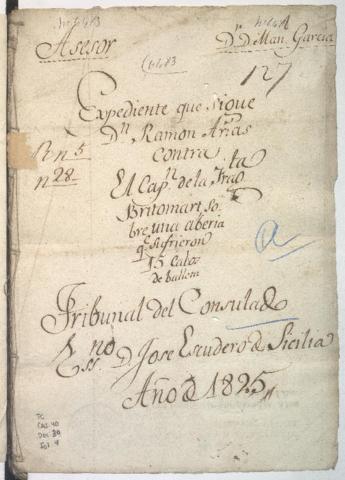 Asesor
Dr. D. Man. Garcia
127
Expediente que sigue
Dn. Ramon Arias
contra
El Capn. de la Fragta
Britomart so
bre una aberia
qe. sufrieron
15
de balleta
Pn 5
n 28
a
Tribunal del Consulado
Essno. D. Jose Escudero de Sicilia
Año de 1825
TC
Caj. 40
Doc. 89
Fol. 4